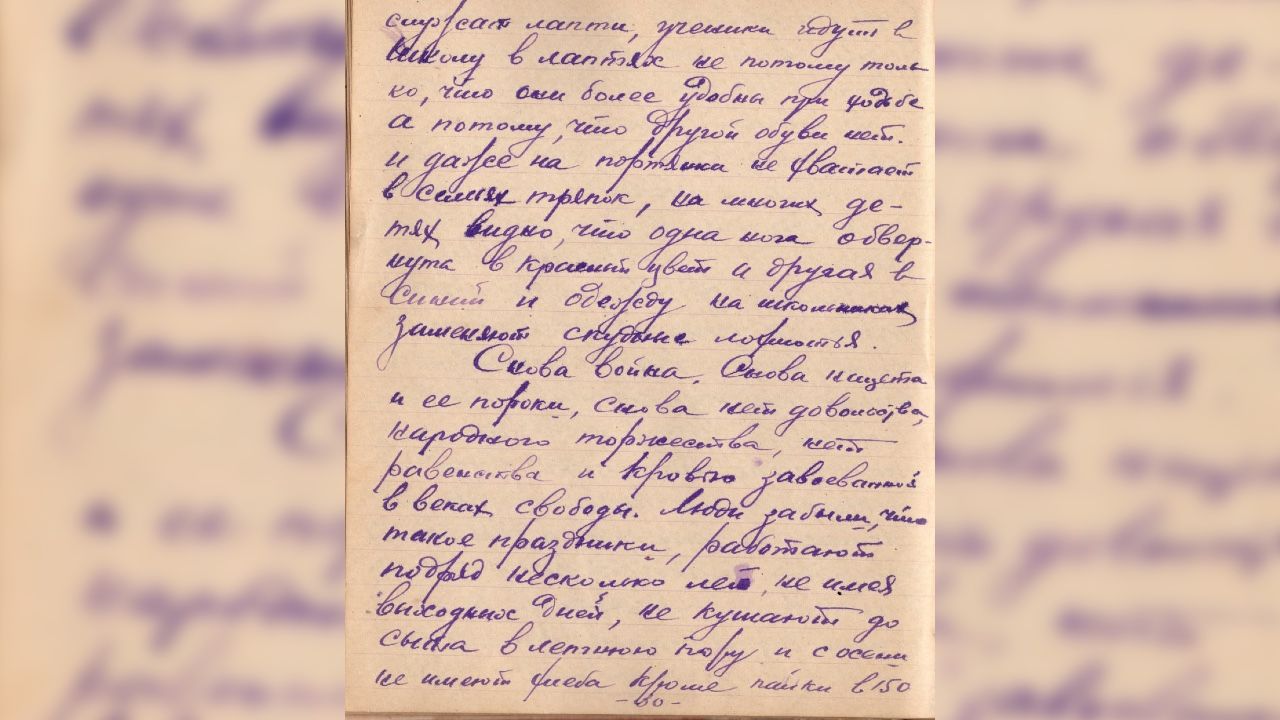 служат лапти, ученики идут в
школу в лаптях не потому толь
ко, что они более удобны при ходьбе
а потому, что другой обуви нет.
и даже на портянки не хватает
в семьях тряпок, на многих де-
тях видно, что одна нога обвер-
нута в красный цвет и другая в
синий и одежду на школьниках
заменяют скудные лохмотья.
Снова война. Снова нищета
и ее пороки, снова нет довольства,
народного торжества, нет
равенства и кровью завоеванной
в веках свободы. Люди забыли, что
такое праздники, работают
подряд несколько лет, не имея
выходных дней, не кушают до
сыта в летнюю пору и с осени
не имеют хлеба кроме пайки в 150
-60-